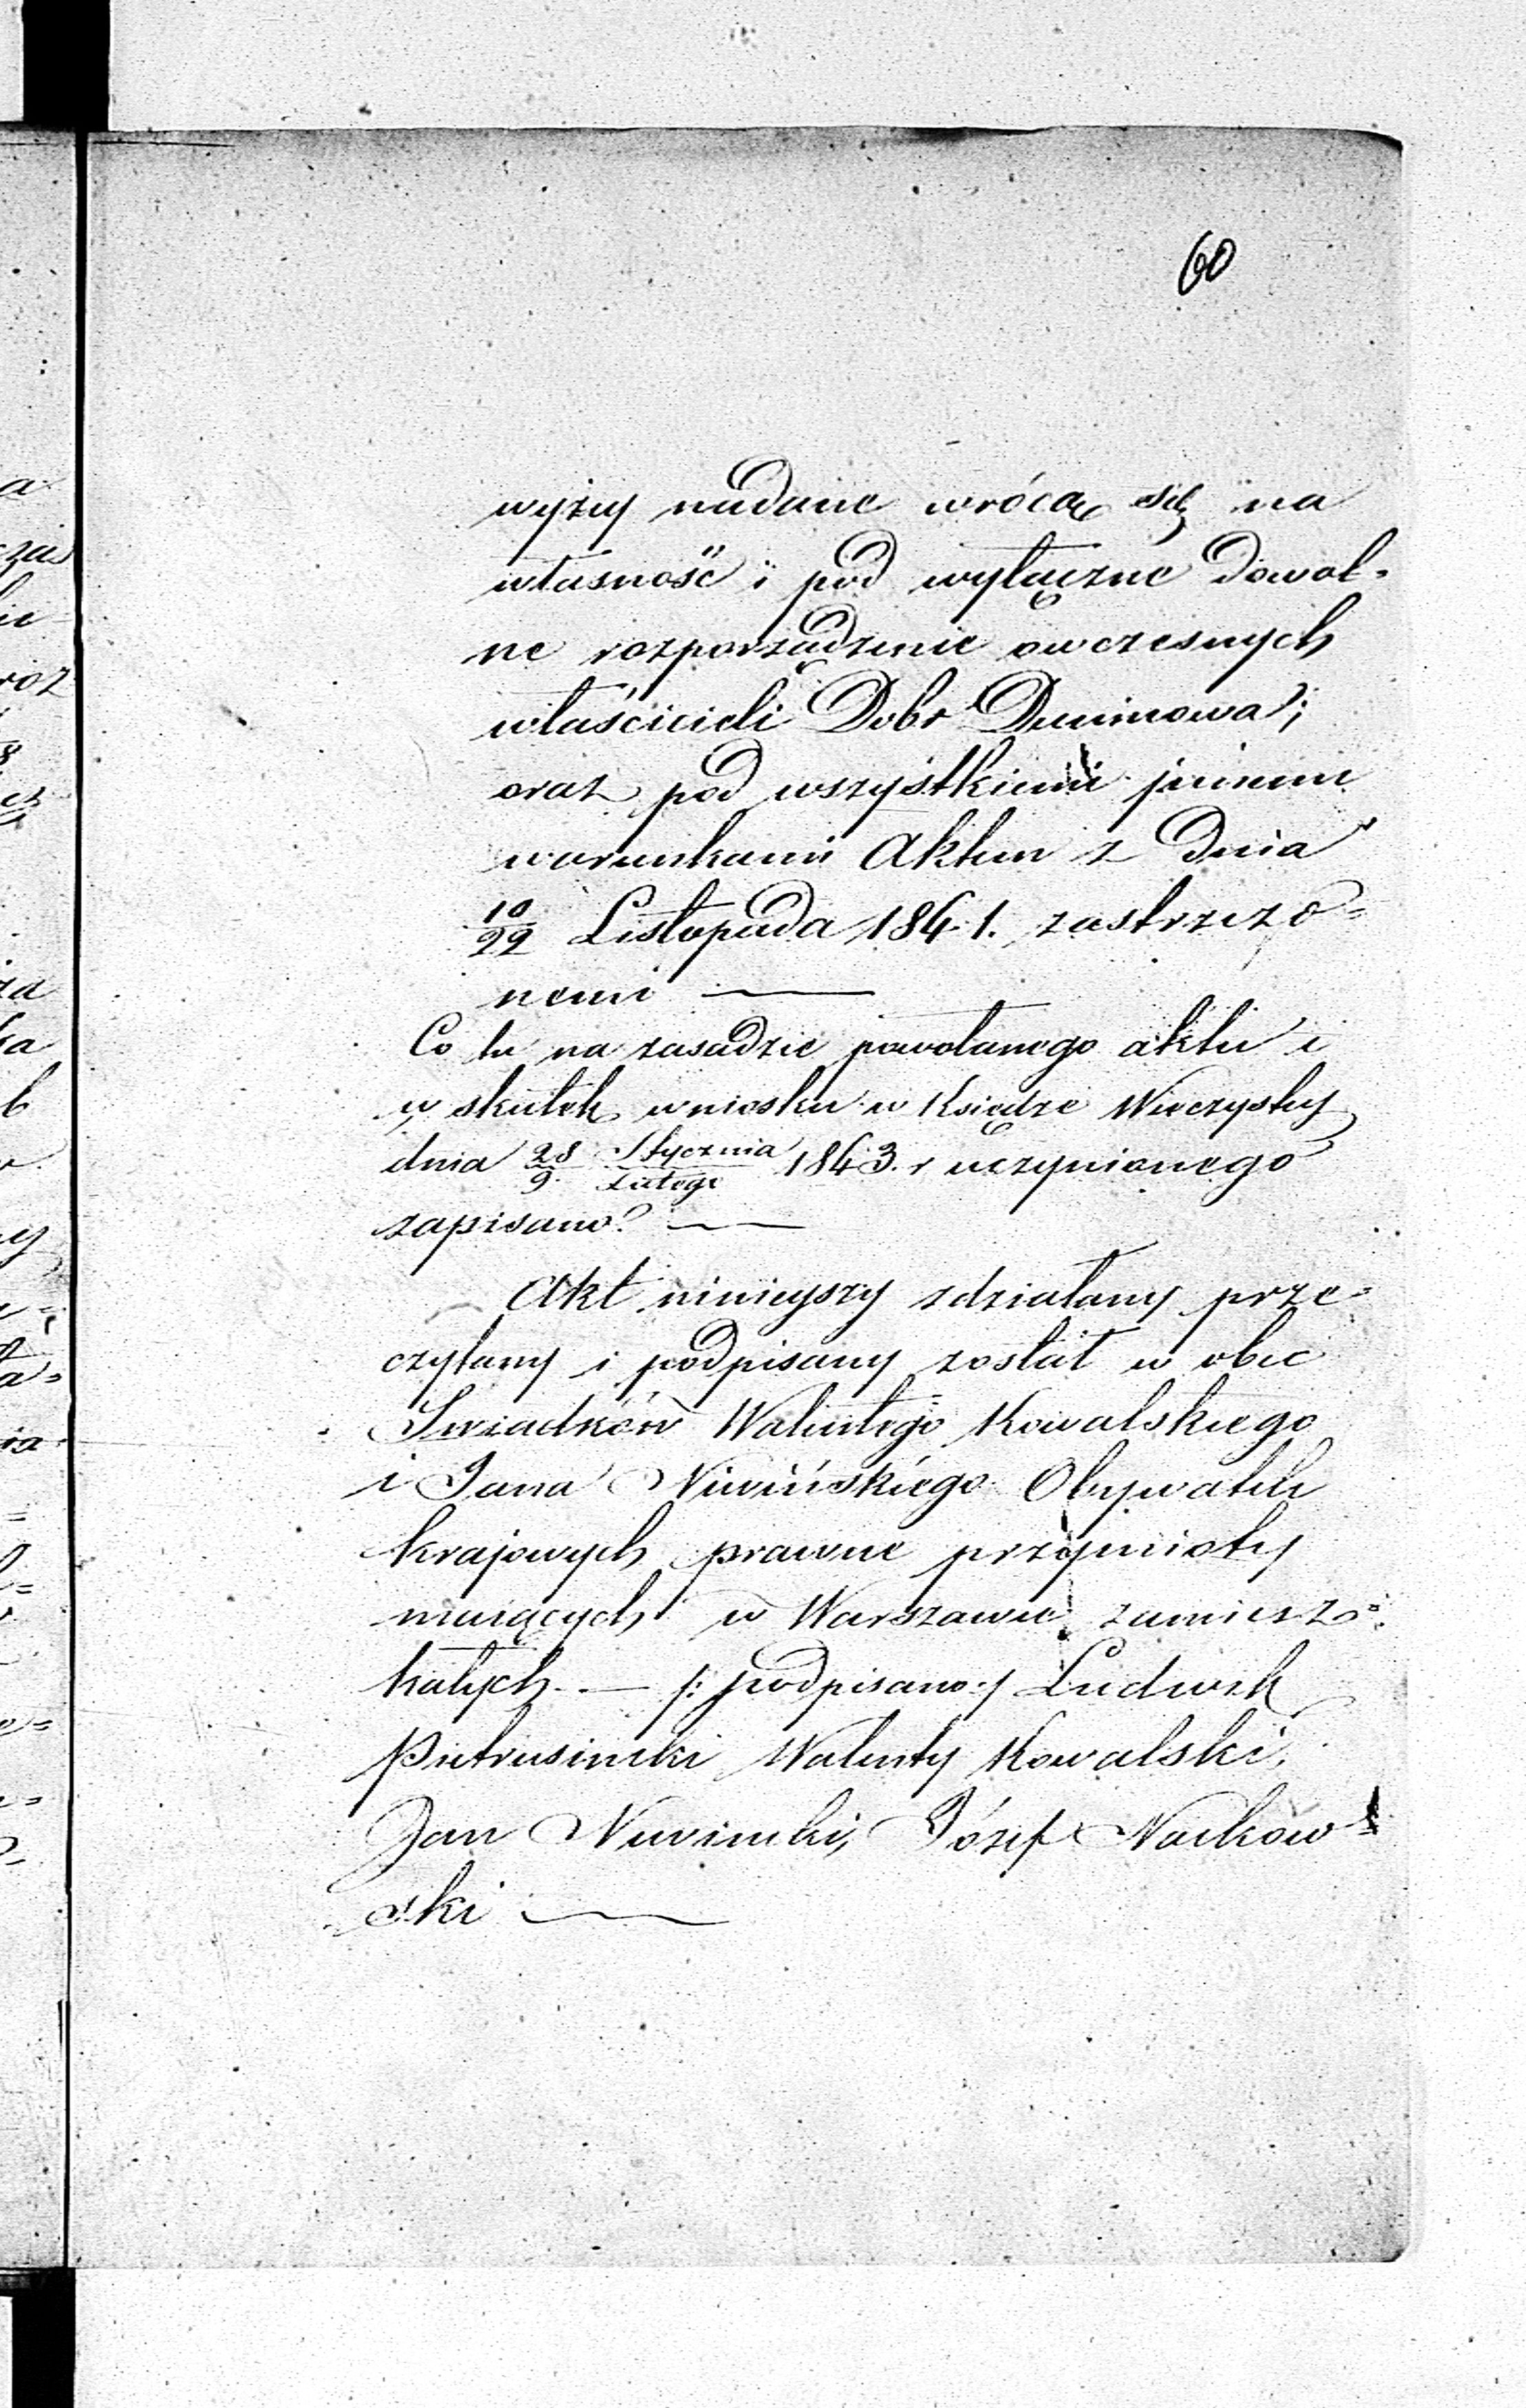 60
wyżey nadane wrócą się na
własność i pod wyłączne dowol=
ne rozporządzenie ówczesnych
właścicieli Dobr Duninowa;
oraz pod wszystkiemi innemi
warunkami Aktem z dnia
10/22 Listopada 1841. zastrzeżo=
nemi —
Co tu na zasadzie powołanego aktu i
w skutek wniosku w Księdze Wieczystey
dnia 28/9 Stycznia/Lutego 1843. r uczynionego
zapisano. —
Akt ninieyszy zdziałany prze=
czytany i podpisany został w obec
Swiadków Walentego Kowalskiego
i Jana Niwińskiego Obywateli
krajowych prawne przymioty
maiących w Warszawie zamiesz=
kałych. — /: podpisano :/ Ludwik
Pietrusinski Walenty Kowalski,
Jan Niwinski, Józef Naików=
ski —